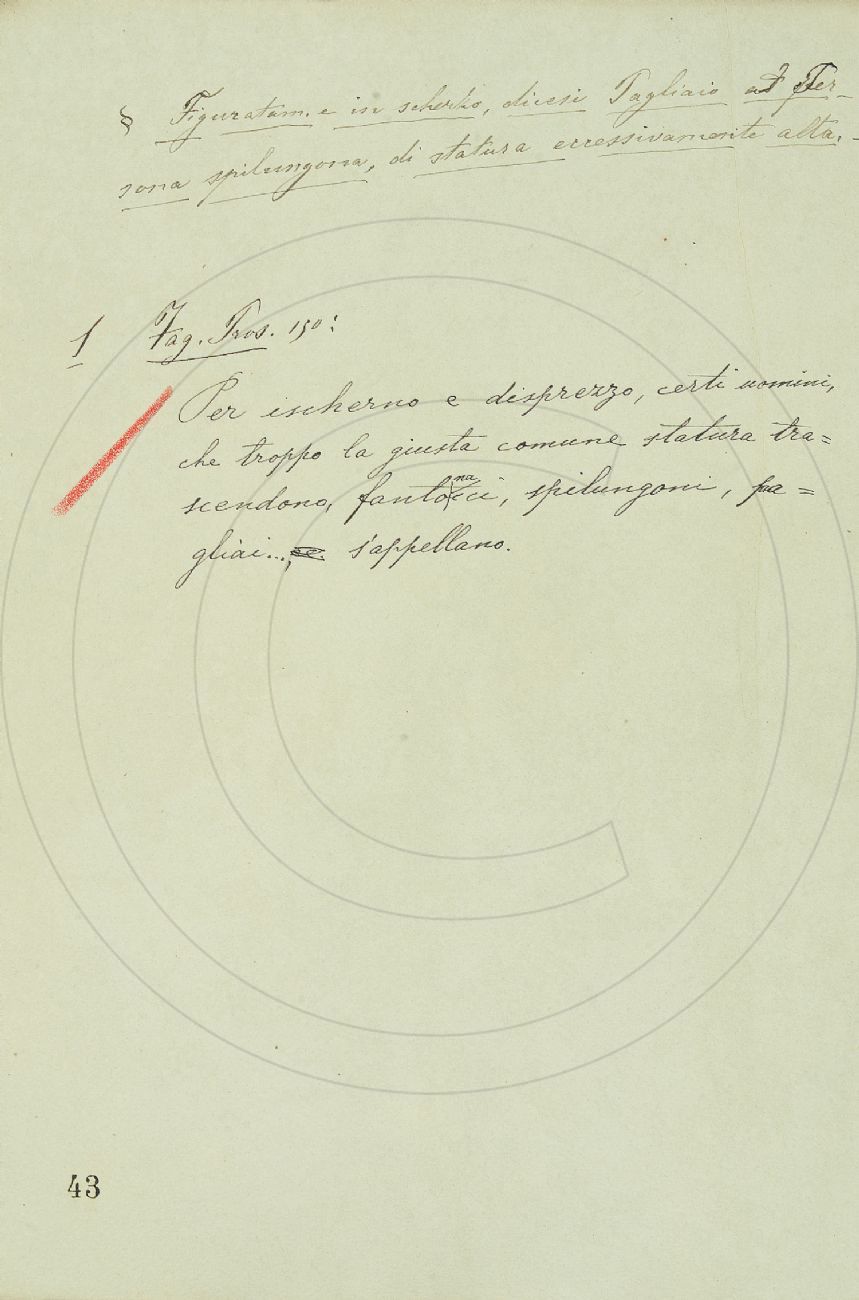 § Figuratam. e in scherzo, dicesi Pagliaio ad Per-
sona spilungona, di statura eccessivamente alta. -
1 Fag. Pros. 150:
Per ischerno e disprezzo, certi uomini,
che troppo la giusta comune statura tra=
scendono, fantonacci, spilungoni, pa=
gliai... s'appellano.
43